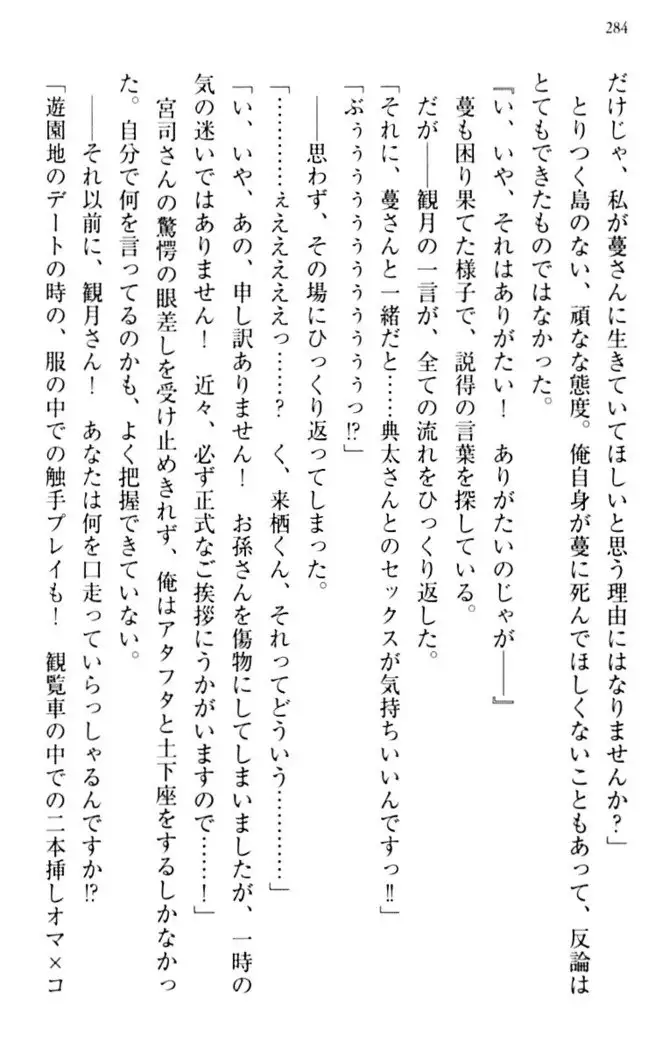 284
だけじゃ、私が蔓さんに生きていてほしいと思う理由にはなりませんか？」
とりつく島のない、頑なな態度。俺自身が蔓に死んでほしくないこともあって、反論は
とてもできたものではなかった。
『い、いや、それはありがたい！　ありがたいのじゃが――』
蔓も困り果てた様子で、説得の言葉を探している。
だが――観月の一言が、全ての流れをひっくり返した。
「それに、蔓さんと一緒だと……典太さんとのセックスが気持ちいいんですっ!!」
「ぶぅぅぅぅぅぅぅぅぅぅっ!?」
――思わず、その場にひっくり返ってしまった。
「…………ぇええええええっ……？　く、来栖くん、それってどういう…………」
「い、いや、あの、申し訳ありません！　お孫さんを傷物にしてしまいましたが、一時の
気の迷いではありません！　近々、必ず正式なご挨拶にうかがいますので……！」
宮司さんの驚愕の眼差しを受け止めきれず、俺はアタフタと土下座をするしかなかっ
た。自分で何を言ってるのかも、よく把握できていない。
――それ以前に、観月さん！　あなたは何を口走っていらっしゃるんですか!?
「遊園地のデートの時の、服の中での触手プレイも！　観覧車の中での二本挿しオマ×コ